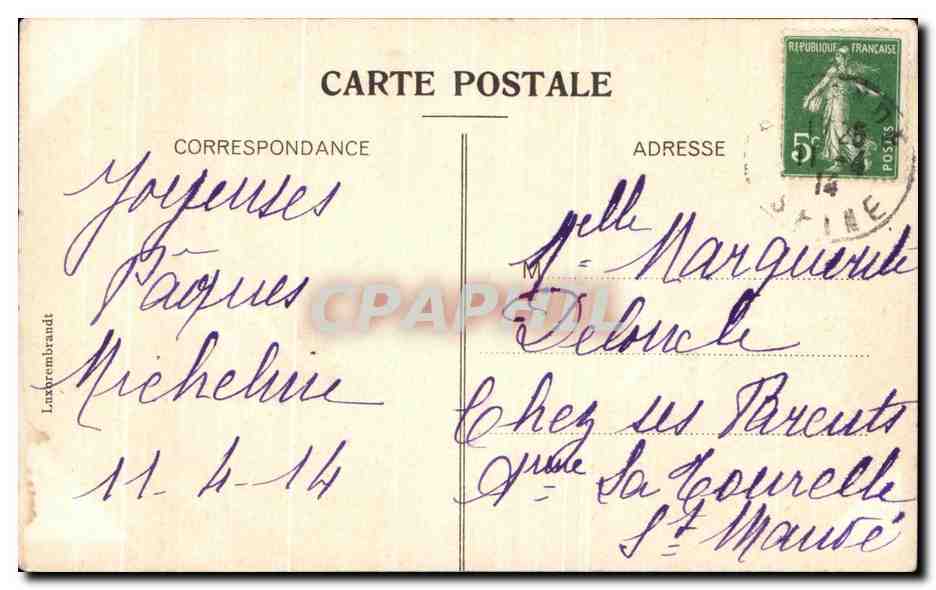 CARTE POSTALE
CORRESPONDANCE
Joyeuses
Pâques
Micheline
11-4-14
Luxorembrandt
ADRESSE
REPUBLIQUE FRANÇAISE
5c
POSTES
14
SEINE
M
Melle Marguerite
Deloncle
Chez ses Parents
La Tourelle
St Mandé
CPAPHIL